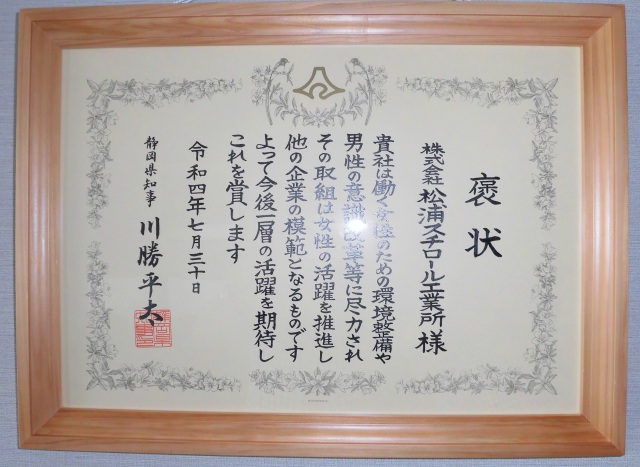 褒状
株式会社 松浦スチロール工業所 様
貴社は働く女性のための環境整備や
男性の意識改革等に尽力され
その取組は女性の活躍を推進し
他の企業の模範となるものです
よって今後一層の活躍を期待し
これを賞します
令和四年七月三十日
静岡県知事 川勝平太